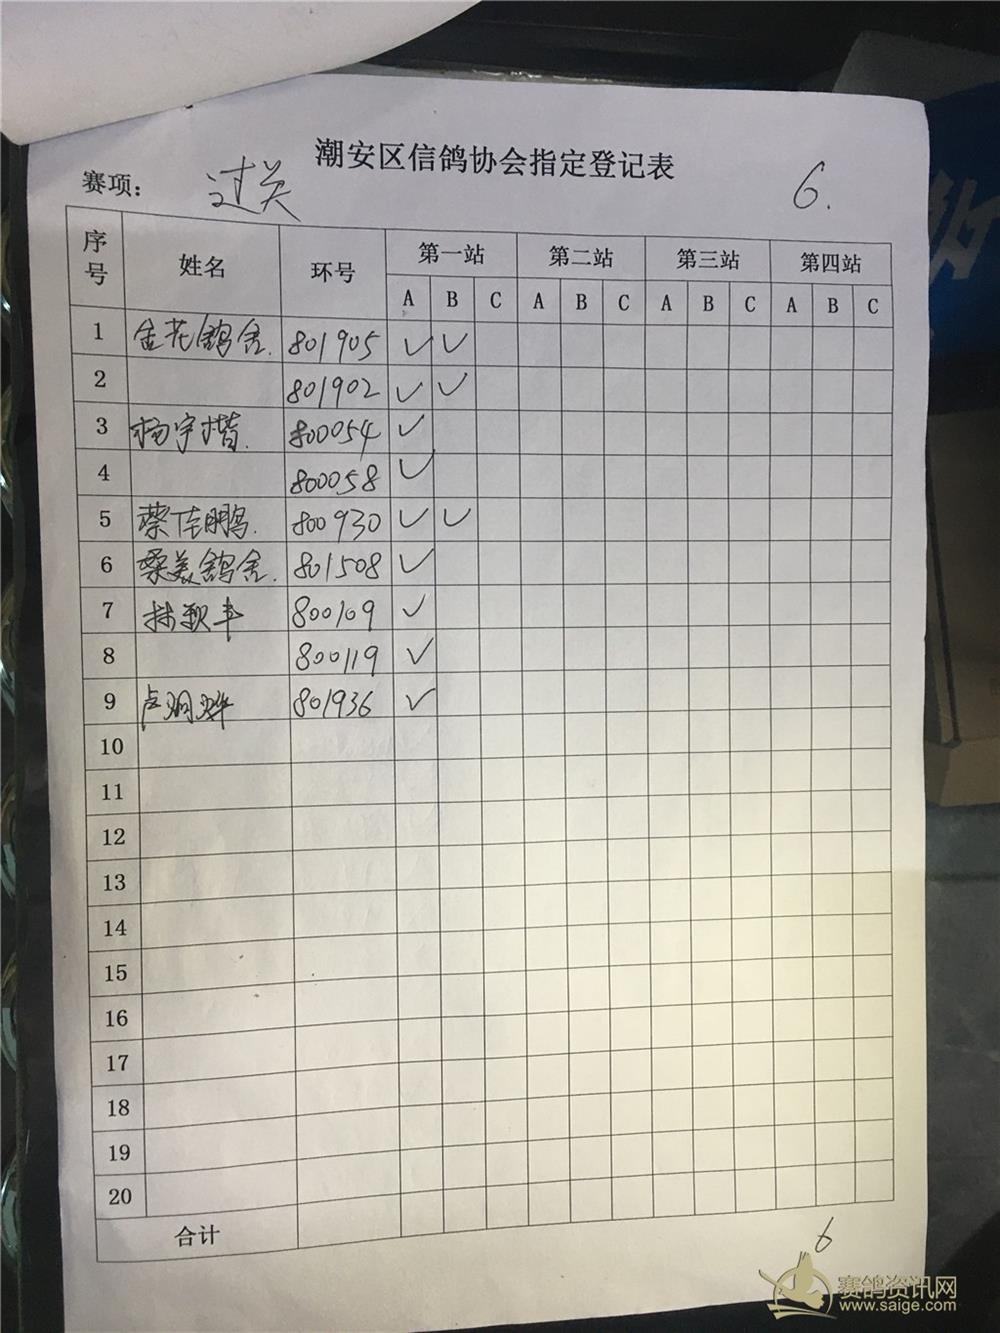 潮安区信鸽协会指定登记表
赛项： 过关 6.
序号 姓名 环号 第一站 第二站 第三站 第四站
A B C A B C A B C A B C
1 金花鸽舍. 801905 ✓ ✓
2 801902 ✓ ✓
3 杨宇楷. 800054 ✓
4 800058 ✓
5 蔡佳鹏. 800930 ✓ ✓
6 桑美鸽舍. 801508 ✓
7 林歌丰 800109 ✓
8 800119 ✓
9 卢 801936 ✓
10
11
12
13
14
15
16
17
18
19
20
合计
6
赛鸽资讯网
www.saige.com